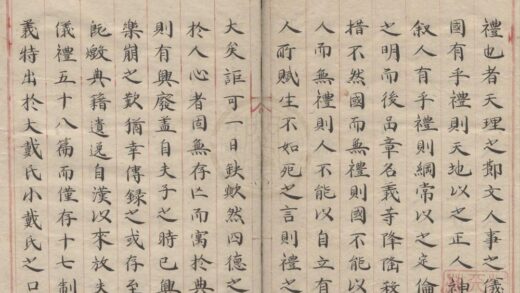 禮也者天理之節文人事之儀
國有乎禮則天地以之正人神
叙人有乎禮則綱常以之定倫
之明而後啚章名義等降隆殺
措不然國而無禮則國不能以
人而無禮則人不能以自立有
人所賦生不如死之言則禮之
大矣詎可一日缺歟然四德之
於人心者固無存亡而寓於典
則有興廢盖自夫子之時已興
樂崩之歎猶幸傳録之或存至
既燬典籍遺逸自漢以來放失
儀禮五十八篇而僅存十七制
義特出於大戴氏小戴氏之口